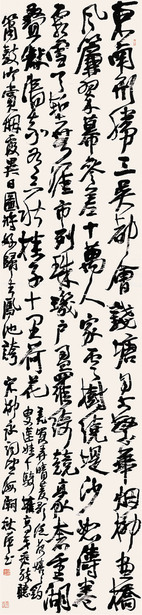 東南形勝三吳都會錢塘自古繁華煙柳畫橋
風簾翠幕參差十萬人家雲樹繞堤沙怒濤卷
霜雪天塹無涯市列珠璣戶盈羅綺競豪奢重湖
疊巘清嘉有三秋桂子十里荷花羌管弄晴菱歌泛夜嬉嬉釣
叟蓮娃千騎擁高牙乘醉聽
簫鼓吟賞煙霞異日圖將好景歸去鳳池誇 宋柳永詞望海潮 秋書